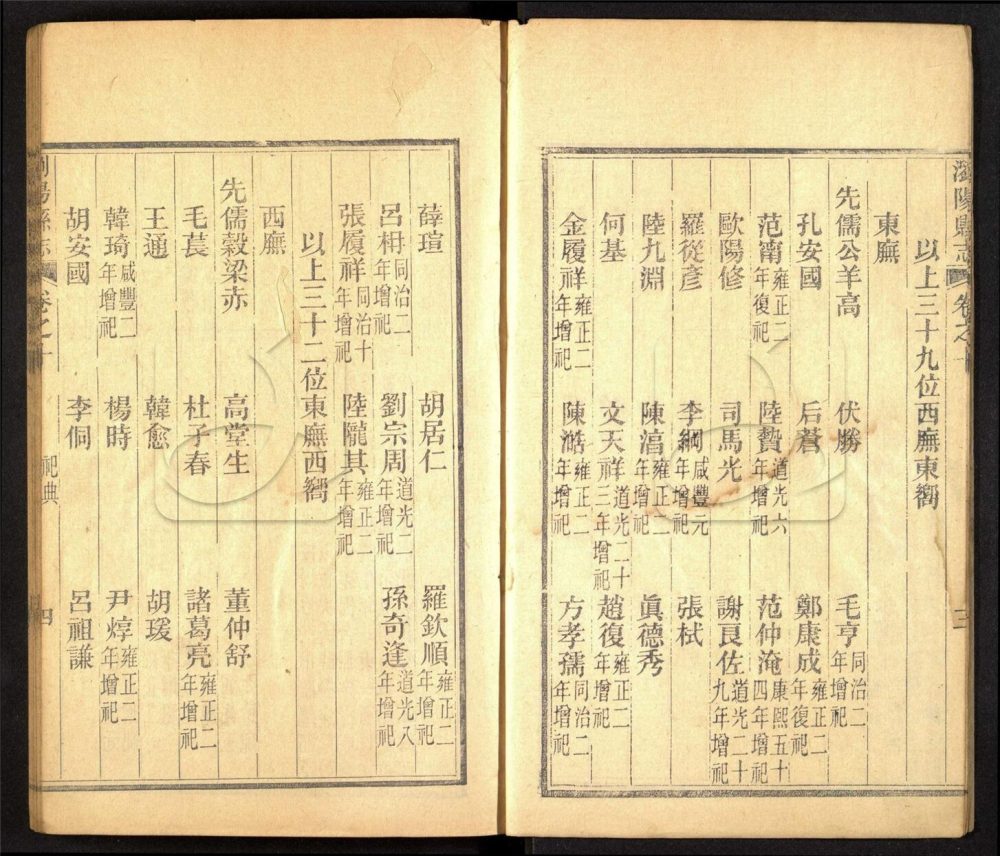 瀏陽縣志 卷之十 三
以上三十九位西廡東嚮
東廡
先儒公羊高 伏勝 毛亨同治二年增祀
孔安國 后蒼 鄭康成雍正二年復祀
范甯雍正二年復祀 陸贄道光六年增祀 范仲淹康熙五十四年增祀
歐陽修 司馬光 謝良佐道光二十九年增祀
羅從彥 李綱咸豐元年增祀 張栻
陸九淵 陳淳雍正二年增祀 眞德秀
何基 文天祥道光二十三年增祀 趙復雍正二年增祀
金履祥雍正二年增祀 陳澔雍正二年增祀 方孝孺同治二年增祀
薛瑄 胡居仁 羅欽順雍正二年增祀
呂柟同治二年增祀 劉宗周道光二年增祀 孫奇逢道光八年增祀
張履祥同治十年增祀 陸隴其雍正二年增祀
以上三十二位東廡西嚮
西廡
先儒穀梁赤 高堂生 董仲舒
毛萇 杜子春 諸葛亮雍正二年增祀
王通 韓愈 胡瑗
韓琦咸豐二年增祀 楊時 尹焞雍正二年增祀
胡安國 李侗 呂祖謙
瀏陽縣志 卷之十 祀典 四